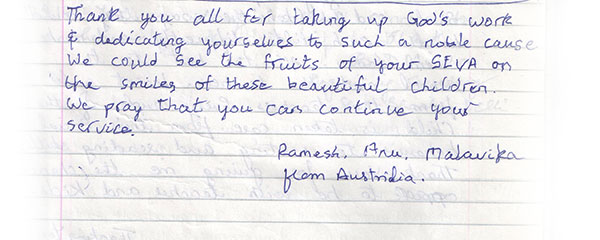 Thank you all for taking up God's work
& dedicating yourselves to such a noble cause
We could see the fruits of your SEVA on
the smiles of these beautiful children.
We pray that you can continue your
service.
Ramesh, Anu, Malavika
from Australia.